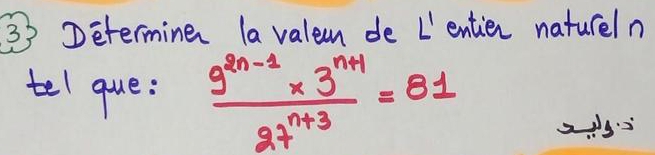 3) Déterminer la valeur de L'entier naturel n
tel que : 9^{2n-1} × 3^{n+1} / 27^{n+3} = 81
ذ. وليد